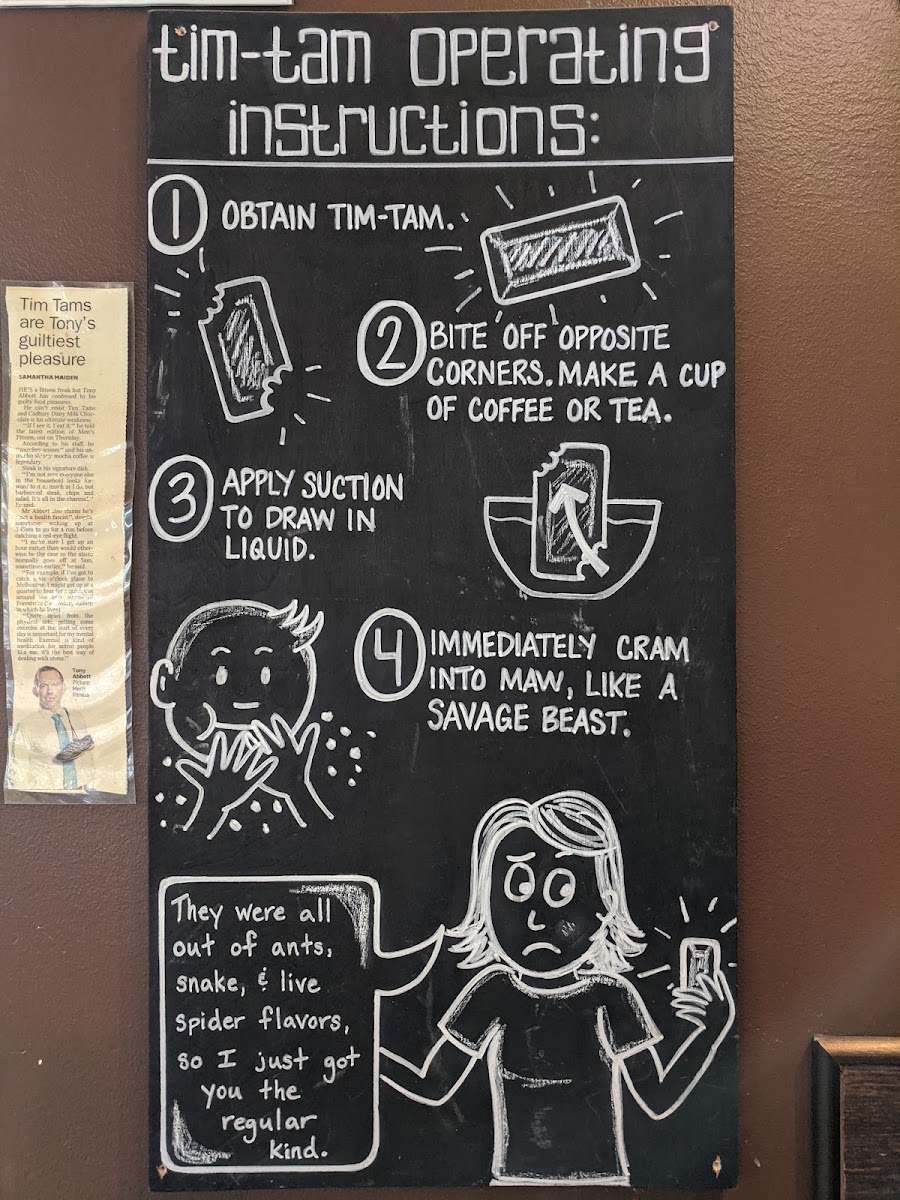 tim-tam operating
instructions:
1 OBTAIN TIM-TAM.
2 BITE OFF OPPOSITE
CORNERS. MAKE A CUP
OF COFFEE OR TEA.
3 APPLY SUCTION
TO DRAW IN
LIQUID.
4 IMMEDIATELY CRAM
INTO MAW, LIKE A
SAVAGE BEAST.
They were all
out of ants,
snake, & live
spider flavors,
so I just got
you the
regular
kind.
Tim Tams
are Tony's
guiltiest
pleasure
SAMANTHA MAIDEN
HE'S a fitness freak but Tony
Abbott has confessed to his
guilty food pleasures.
He can't resist Tim Tams
and Cadbury Dairy Milk Choc-
olate is his ultimate weakness.
"If I see it, I eat it," he told
the latest edition of Men's
Fitness, out on Thursday.
According to his staff, he
legendary.
Steak is his signature dish.
"I'm not sure everyone else
in the household looks for-
ward to it as much as I do, but
barbecued steak, chips and
salad. It's all in the charcoal,"
he said.
Mr Abbott also claims he's
catching a red-eye flight.
"I make sure I get up an
hour earlier than would other-
wise be the case so the alarm
normally goes off at 5am,
sometimes earlier," he said.
"For example, if I've got to
"Quite apart from the
physical side, getting some
exercise at the start of every
day is important for my mental
health. Exercise is kind of
meditation for active people
like me, it's the best way of
dealing with stress."
Tony
Abbott
Picture:
Men's
Fitness